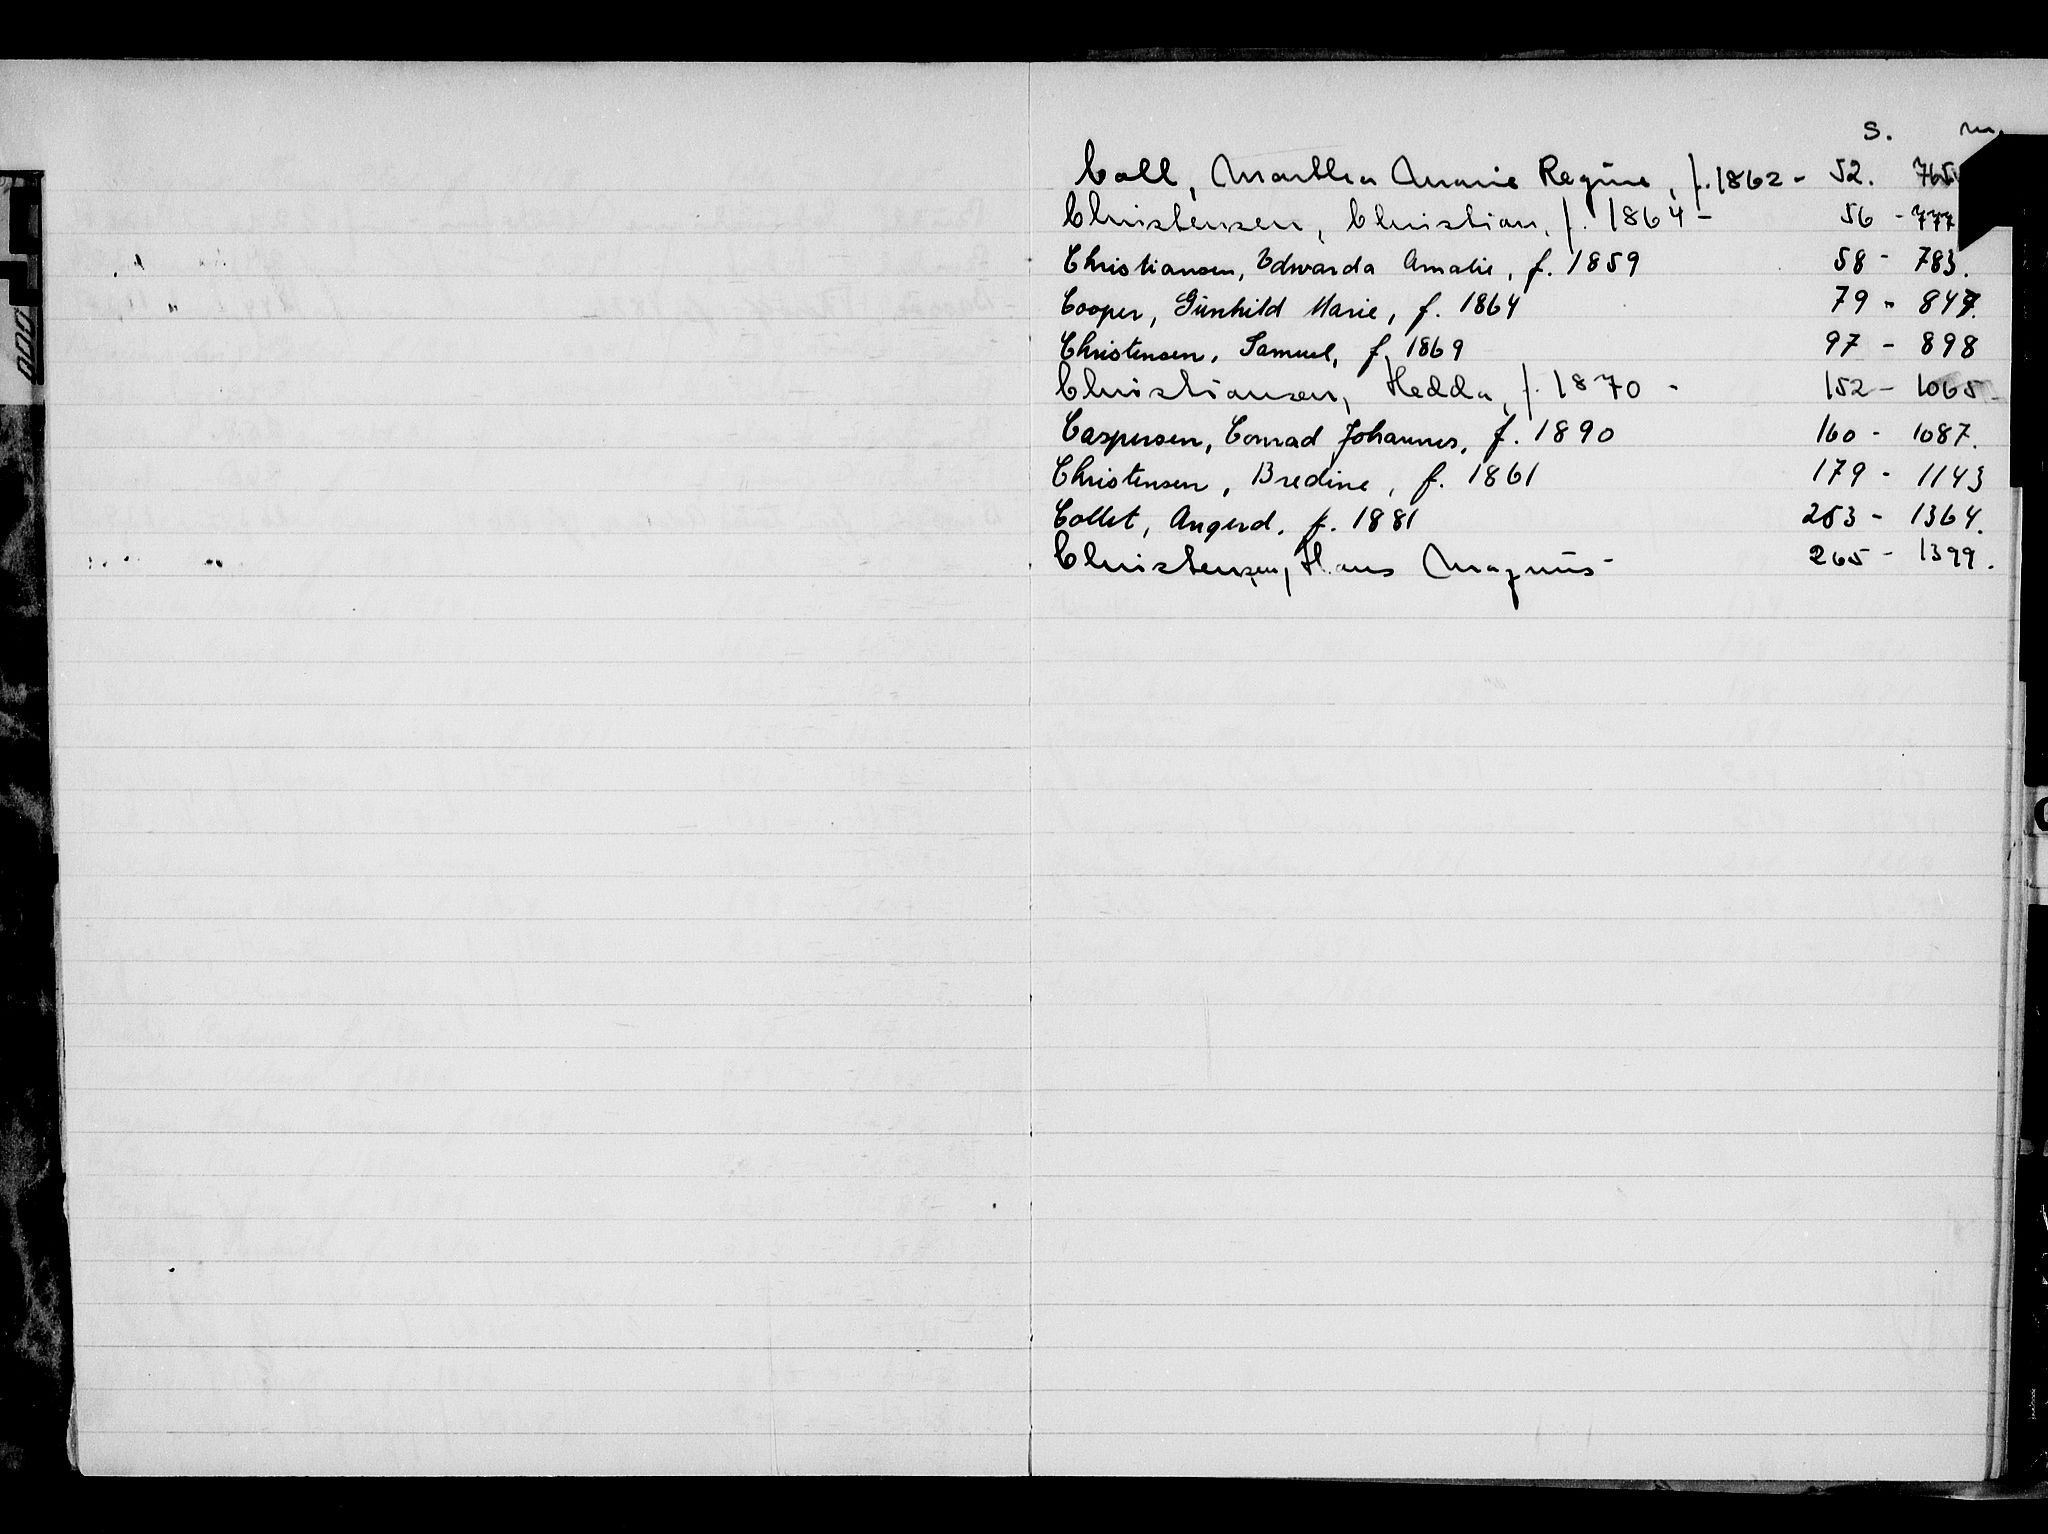 s. m.
Coll, Marthea Marie Regine, f. 1862 - 52. 765
Christensen, Christian, f. 1864 - 56 - 777
Christiansen, Edwarda Amalie, f. 1859 58 - 783.
Cooper, Gunhild Marie, f. 1864 79 - 847.
Christensen, Samuel, f. 1869 97 - 898
Christiansen, Hedda, f. 1870 - 152 - 1065
Caspersen, Conrad Johannes, f. 1890 160 - 1087.
Christensen, Bredine, f. 1861 179 - 1143
Collet, Angerd. f. 1881 253 - 1364.
Christensen, Hans Magnus - 265 - 1399.